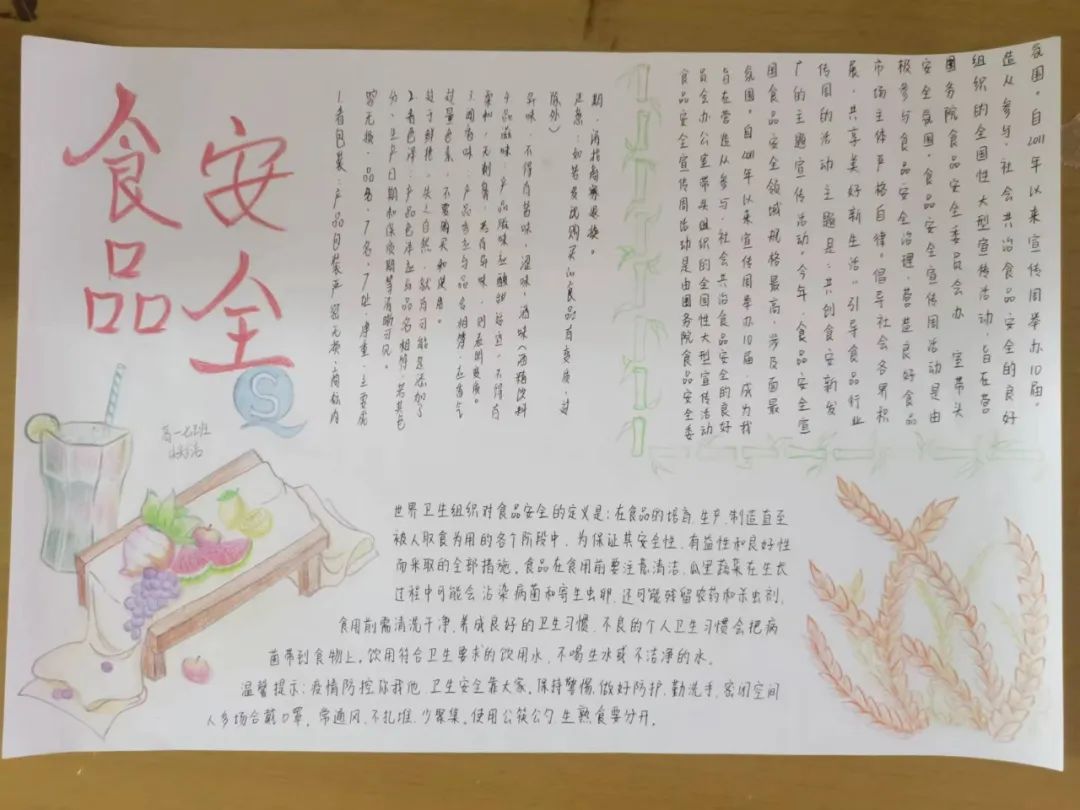 食品
安全
QS
高一七班
1.看包装:产品包装严密无损,商标内
容无损,品名,厂名,厂址,净重,主要成
分,生产日期和保质期等清晰可见。
2.看色泽:产品色泽应与品名相符,若其色
过于鲜艳,失之自然,就有可能是添加了
过量色素,不要购买和使用。
3.闻香味:产品香应与品名相符,应香气
柔和,无刺鼻,若有异味,则表明变质。
4.品滋味 产品滋味应酸甜适宜,不得有
异味,不得有苦味,涩味,酒味(酒精饮料
除外)
注意:如若发现购买的食品有变质,过
期,请找商家退换。
食品安全宣传周活动是由国务院食品安全委
员会办公室带头组织的全国性大型宣传活动
旨在营造从参与、社会共治食品安全的良好
氛围。自2011年以来宣传周举办10届,成为我
国食品安全领域规格最高,涉及面最
广的主题宣传活动。今年,食品安全宣
传周的活动主题是:"共创食安新发
展,共享美好新生活"引导食品行业
市场主体严格自律。倡导社会各界积
极参与食品安全治理,营造良好食品
安全氛围。食品安全宣传周活动是由
国务院食品安全委员会办 室带头
组织的全国性大型宣传活动,旨在营
造从参与、社会共治食品安全的良好
氛围。自2011年以来宣传周举办10届。
世界卫生组织对食品安全的定义是:在食品的培育、生产、制造直至
被人取食为用的各个阶段中,为保证其安全性、有益性和良好性
而采取的全部措施。食品在食用前要注意清洁。瓜果蔬菜在生长
过程中可能会沾染病菌和寄生虫卵,还可能残留农药和杀虫剂。
食用前需清洗干净。养成良好的卫生习惯,不良的个人卫生习惯会把病
菌带到食物上。饮用符合卫生要求的饮用水,不喝生水或不洁净的水。
温馨提示:疫情防控你我他,卫生安全靠大家。保持警惕,做好防护,勤洗手,密闭空间
人多场合戴口罩,常通风,不扎堆,少聚集。使用公筷公勺,生熟食要分开。